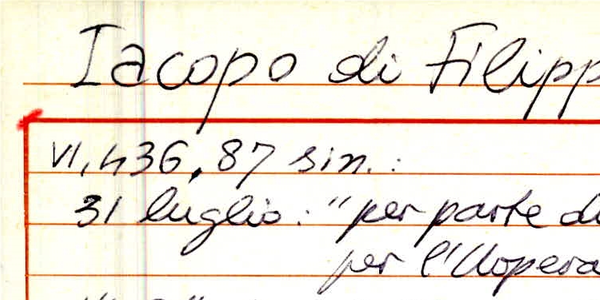 Iacopo di Filipp
VI, 436, 87 sin.:
31 luglio: "per parte di
per l'Uopera